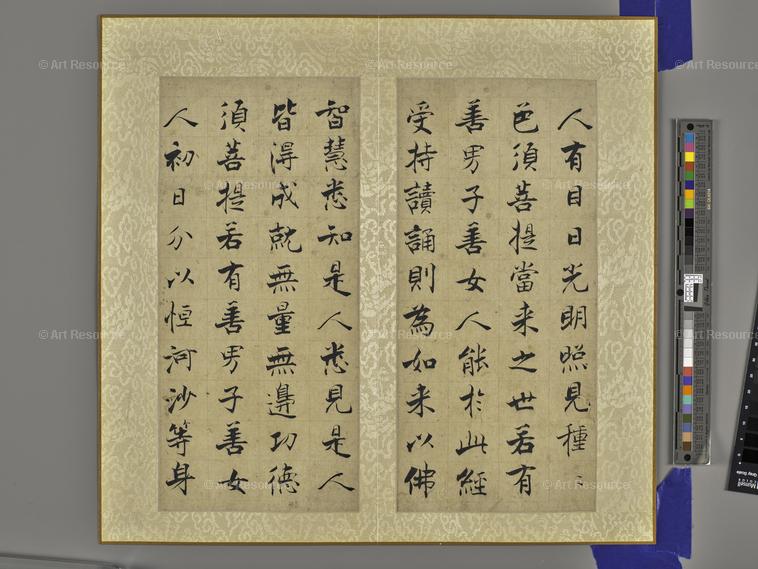 人有目日光明照見種〻
色須菩提當来之世若有
善男子善女人能扵此經
受持讀誦則為如来以佛
智慧悉知是人悉見是人
皆淂成就無量無邊功德
須菩提若有善男子善女
人初日分以恒河沙等身
© Art Resource
© Art Resource
© Art Resource
© Art Resource
© Art Resource
© Art Resource
© Art Resource
© Art Resource
© Art Resource
© Art Resource
© Art Resource
© Art Resource